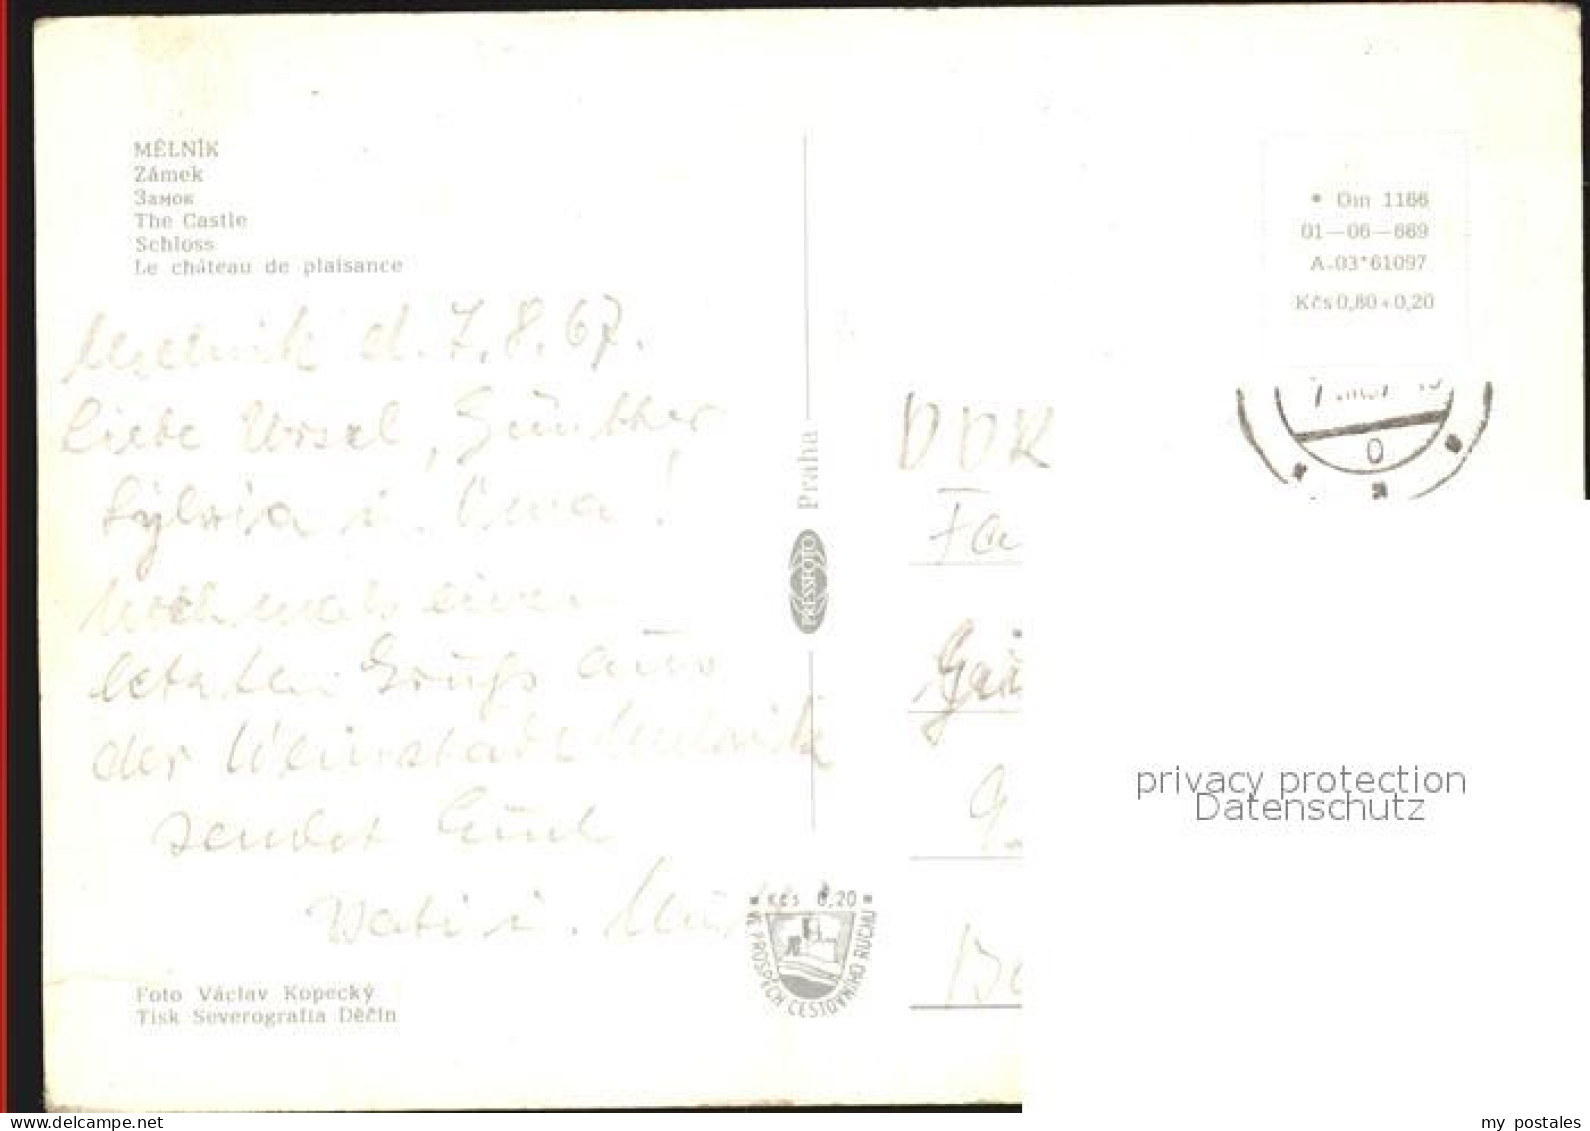 MĚLNÍK
Zámek
Замок
The Castle
Schloss
Le château de plaisance
Melnik d. 7.8.67.
Liebe Ursel, Günther
Sylvia u. Oma!
Nochmals einen
letzten Gruß aus
der Weinstadt Melnik
sendet Euch
Vati u.
Foto Václav Kopecký
Tisk Severografia Děčín
Praha
PRESSFOTO
Kčs 0,20
VE PROSPĚCH CESTOVNÍHO RUCHU
• Om 1166
01—06—669
A-03*61097
Kčs 0,80+0,20
DDR
privacy protection
Datenschutz
ansichtskarten-center.de
my postales